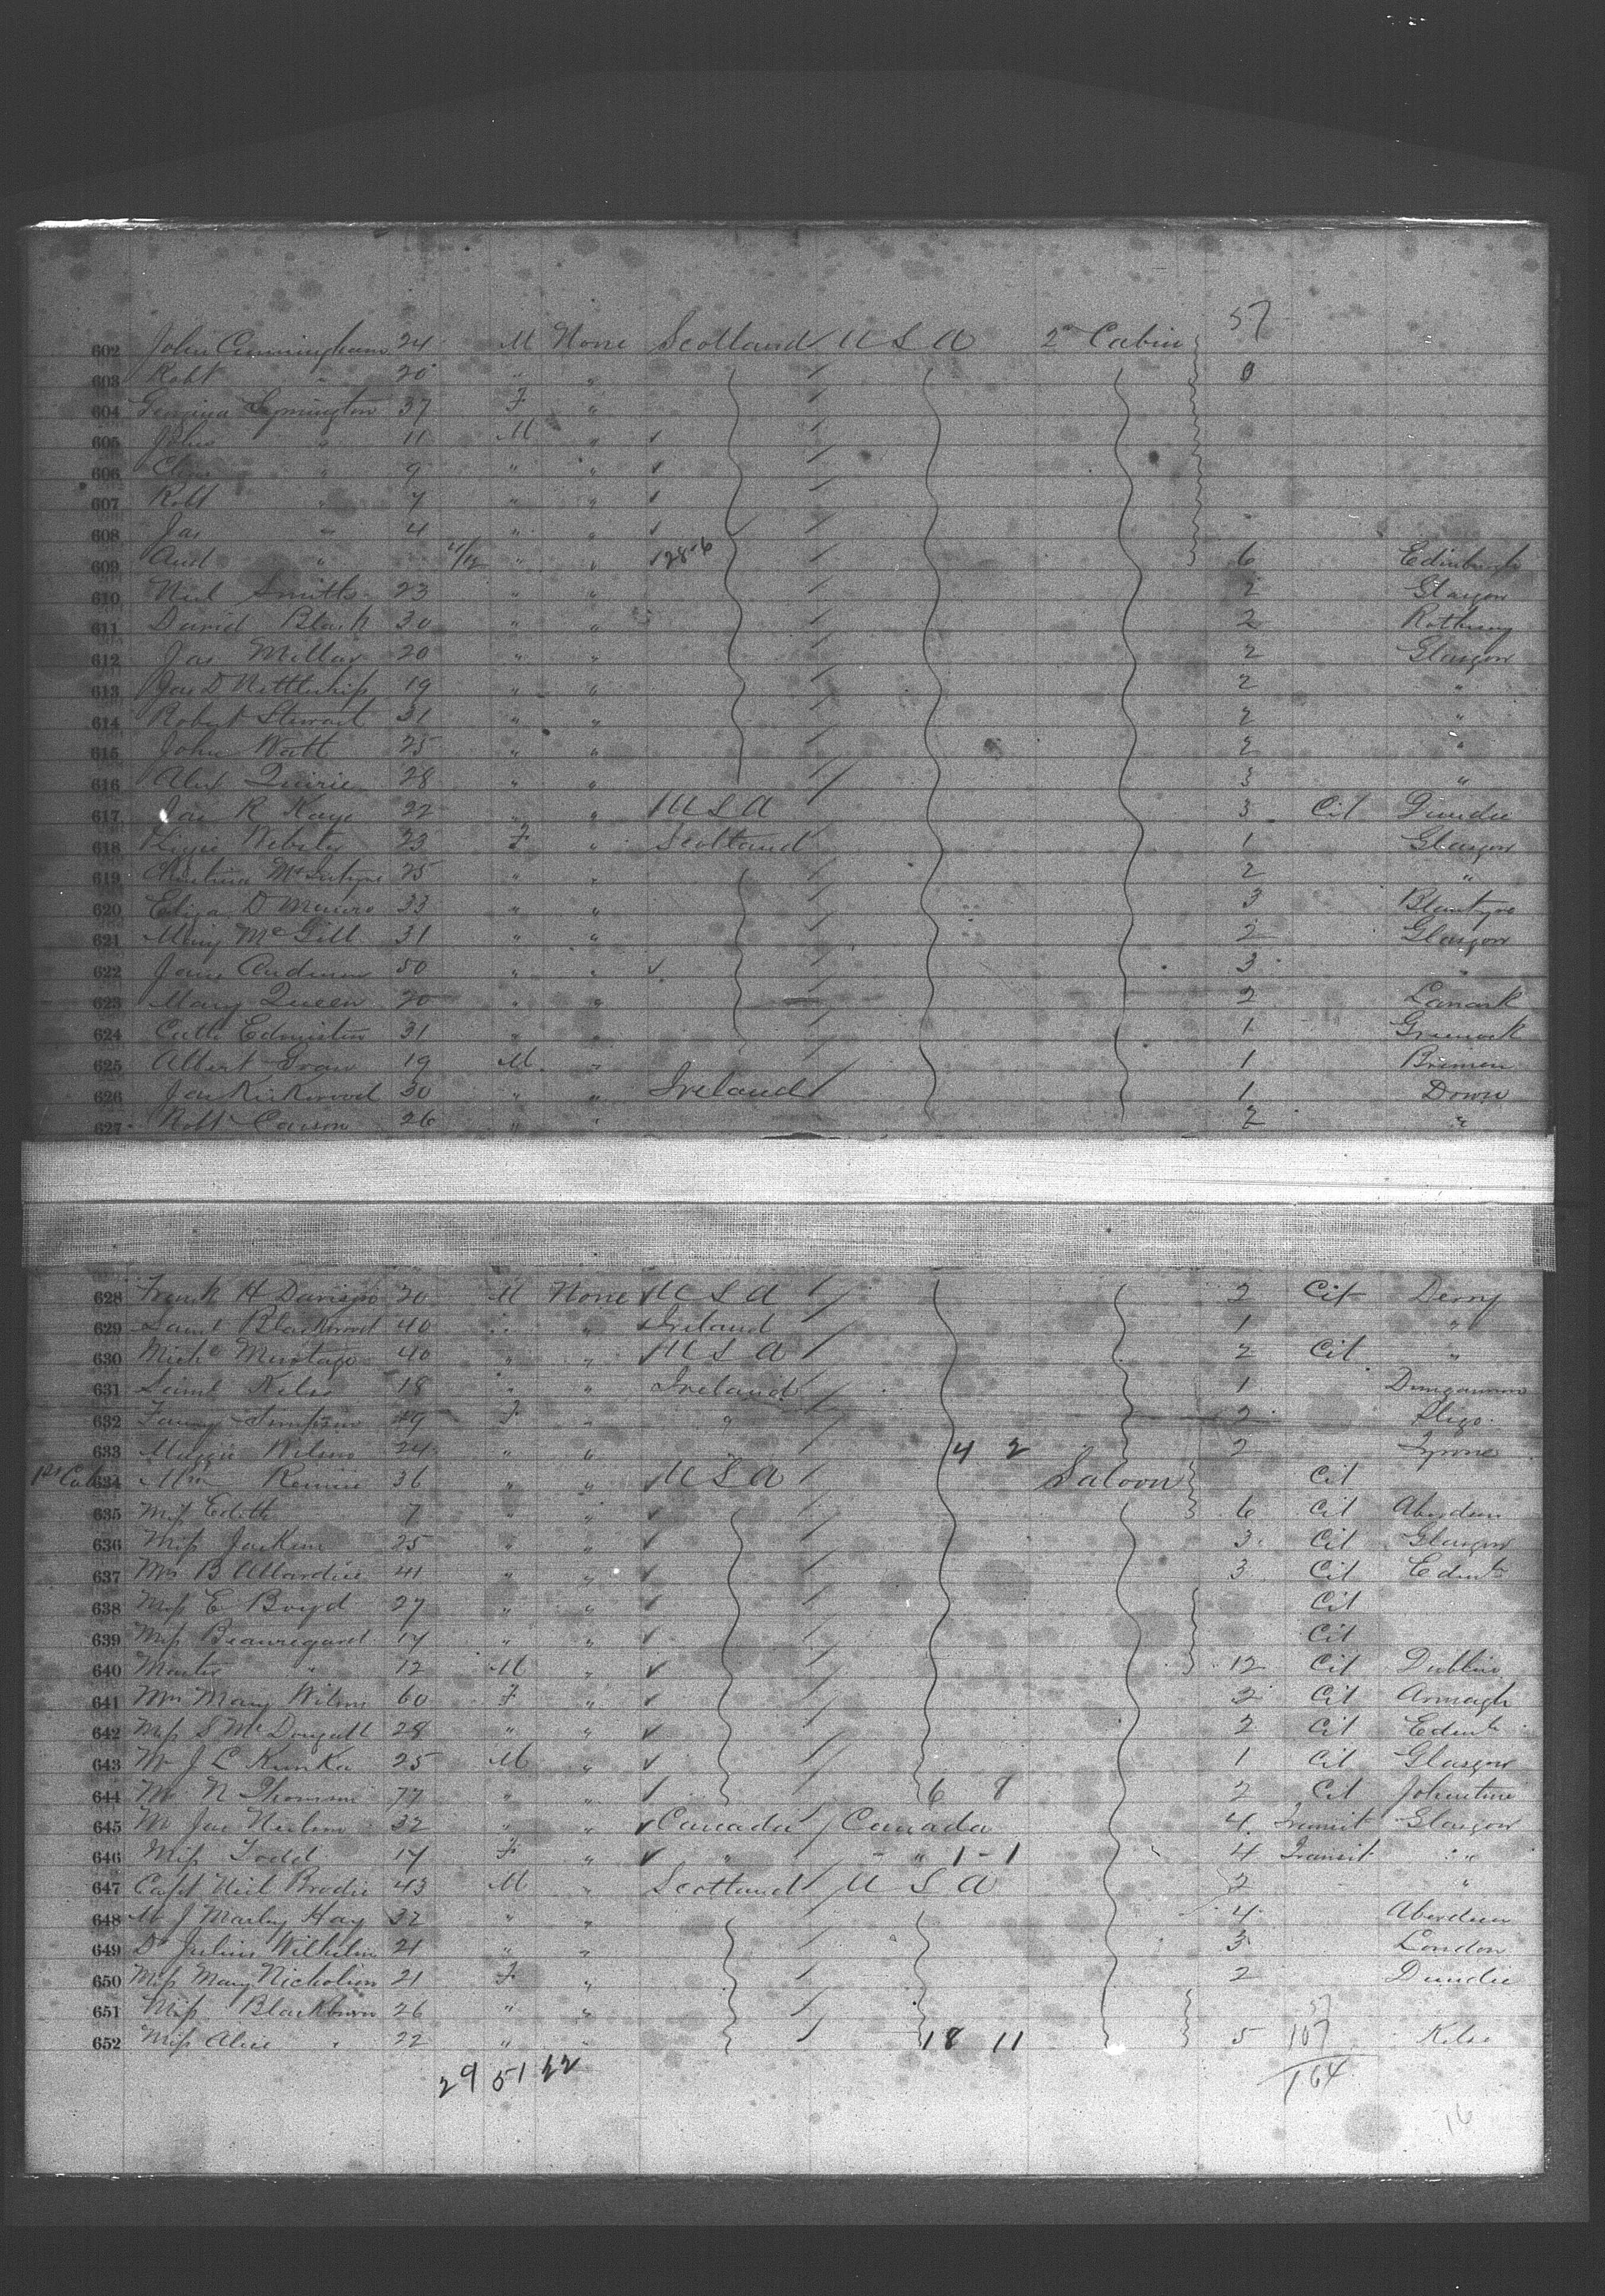 57
602 John Cunningham 24 M None Scotland U S A 2 Cabin
603 Robt " 20 " " 0
604 Symington 37 F "
605 John " 11 M "
606 " 9 " "
607 Robt " 7 " "
608 Jas " 4 " "
609 And " 4/12 " " 28-6 6 Edinburgh
610 Neil Smith 23 " " 2 Glasgow
611 David Black 30 " " 2 Rothesay
612 Jas Millar 20 " " 2 Glasgow
613 Jas D Nettleship 19 " " 2 "
614 Robert Stewart 31 " " 2 "
615 John Watt 25 " " 2 "
616 Alex Quirie 28 " " 3 "
617 Jas R Kaye 22 " " U S A 3 Cit Dundee
618 Lizzie Webster 23 F " Scotland 1 Glasgow
619 Christina McIntyre 25 " " 2 "
620 Eliza D Munro 33 " " 3 Blantyre
621 Mary McGill 31 " " 2 Glasgow
622 Jane Anderson 50 " " 3 "
623 Mary Queen 20 " " 2 Lanark
624 Cath Edmiston 31 " " 1 Greenock
625 Albert 19 M " 1 Bremen
626 Jas Kirkwood 30 " " Ireland 1 Down
627 Robt Carson 26 " " 2 "
628 Frank H Davison 20 M None U S A 2 Cit Derry
629 Saml Blackwood 40 " " Ireland 1 "
630 Michl Murtagh 40 " " U S A 2 Cit "
631 Saml Kelso 18 " " Ireland 1 Dungannon
632 Fanny Simpson 49 F " " 2 Sligo
633 Maggie Wilson 24 " " 4 2 2 Tyrone
1st Cab 634 Mrs Rennie 36 " " U S A Saloon Cit
635 Miss Edith 7 " " 6 Cit Aberdeen
636 Miss Jackson 25 " " 3 Cit Glasgow
637 Mrs B Allardice 41 " " 3 Cit Edinb
638 Miss E Boyd 27 " " Cit
639 Miss Beauregard 14 " " Cit
640 Master " 12 M " 12 Cit Dublin
641 Mrs Mary Wilson 60 F " 3 Cit Armagh
642 Miss S McDougall 28 " " 2 Cit Edinb
643 Mr J L 25 M " 1 Cit Glasgow
644 Mr N Thomson 77 " " 6 8 2 Cit Johnstone
645 Mr Jas Neilson 32 " " Canada Canada 4 Transit Glasgow
646 Miss Todd 14 F " " " 1-1 4 Transit "
647 Capt Neil Brodie 43 M " Scotland U S A 2 "
648 Mr J Marley Hay 32 " " 4 Aberdeen
649 Dr Julius Wilhelm 21 " " 3 London
650 Miss Mary Nicholson 21 F " 2 Dundee
651 Miss Blackburn 26 " " 57
652 Miss Alice " 22 " " 18 11 5 107 Kelso
29 51 22 164
16